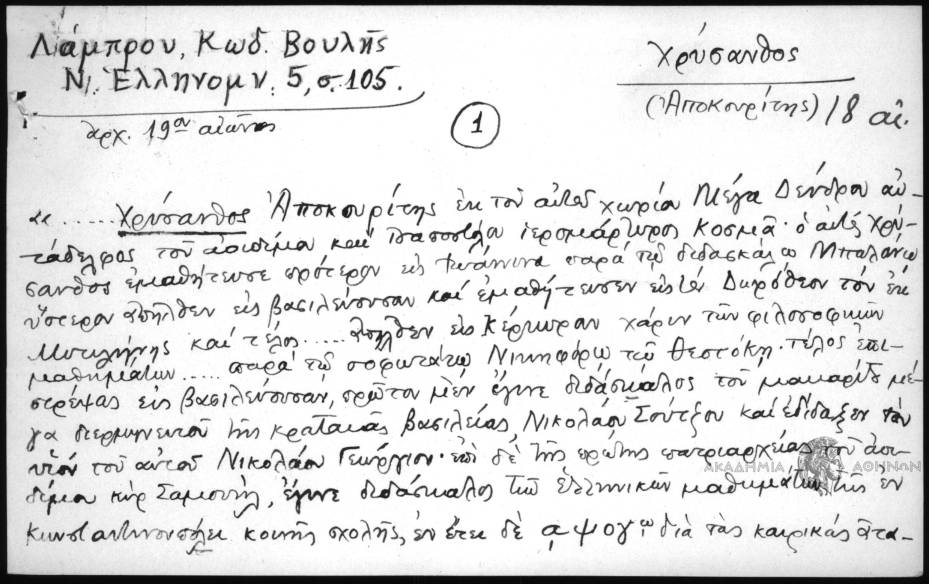 Λάμπρου, Κωδ. Βουλῆς
Ν. Ἑλληνομν. 5, σ. 105.
ἀρχ. 19ου αἰῶνος
1
Χρύσανθος
(Ἀποκουρίτης) 18 αἰ.
«.....Χρύσανθος Ἀποκουρίτης ἐκ τοῦ αὐτοῦ χωρία Μέγα Δένδρου αὐ-
τάδελφος τοῦ ἀοιδίμου καὶ ἱερομάρτυρος Κοσμᾶ· ὁ αὐτὸς Χρύ-
σανθος ἐμαθήτευσε πρότερον εἰς Ἰωάννινα παρὰ τῷ διδασκάλῳ Μπαλάνῳ
ὕστερον ἀπῆλθεν εἰς βασιλεύουσαν καὶ ἐμαθήτευσεν εἰς τὸν Δωρόθεον τὸν ἐκ
Μυτιλήνης καὶ τέλος.....ἀπῆλθεν εἰς Κέρκυραν χάριν τῶν φιλοσοφικῶν
μαθημάτων.....παρὰ τῷ σοφωτάτῳ Νικηφόρῳ τῷ Θεοτόκῃ. τέλος ἐπι-
στρέψας εἰς βασιλεύουσαν, πρῶτον μὲν ἔγινε διδάσκαλος τοῦ μακαρίτου με-
γα διερμηνευτοῦ τῆς κραταιᾶς βασιλείας Νικολάου Σούτζου καὶ ἐδίδαξεν τὸν
υἱὸν τοῦ αὐτοῦ Νικολάου Γεώργιον· ἐπὶ δὲ τῆς πρώτης πατριαρχείας τοῦ ἀοι-
δίμου κὺρ Σαμουὴλ, ἔγινε διδάσκαλος τῶν ἑλληνικῶν μαθημάτων τῆς ἐν
Κωνσταντινουπόλει κοινῆς σχολῆς, ἐν ἔτει δὲ αψογῳ διὰ τὰς καιρικάς ἀτα-
ΑΚΑΔΗΜΙΑ ΑΘΗΝΩΝ